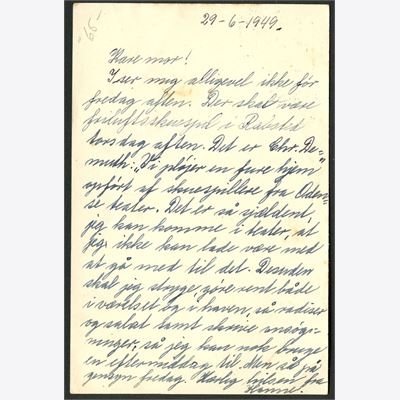 29-6-1949.
Kære mor!
I ser mig alligevel ikke før
fredag aften. Der skal være
friluftsskuespil i
torsdag aften. Det er Chr. De=
muth: "Vi pløjer en fure hjem"
opført af skuespillere fra Oden=
se teater. Det er så sjældent,
jeg kan komme i teater, at
jeg ikke kan lade være med
at gå med til det. Desuden
skal jeg stryge, göre rent både
i værelset og i haven, så radiser
og salat samt skrive
så jeg kan nok bruge
en eftermiddag til. Men så på
gensyn fredag. Kærlig hilsen fra
Hanne.